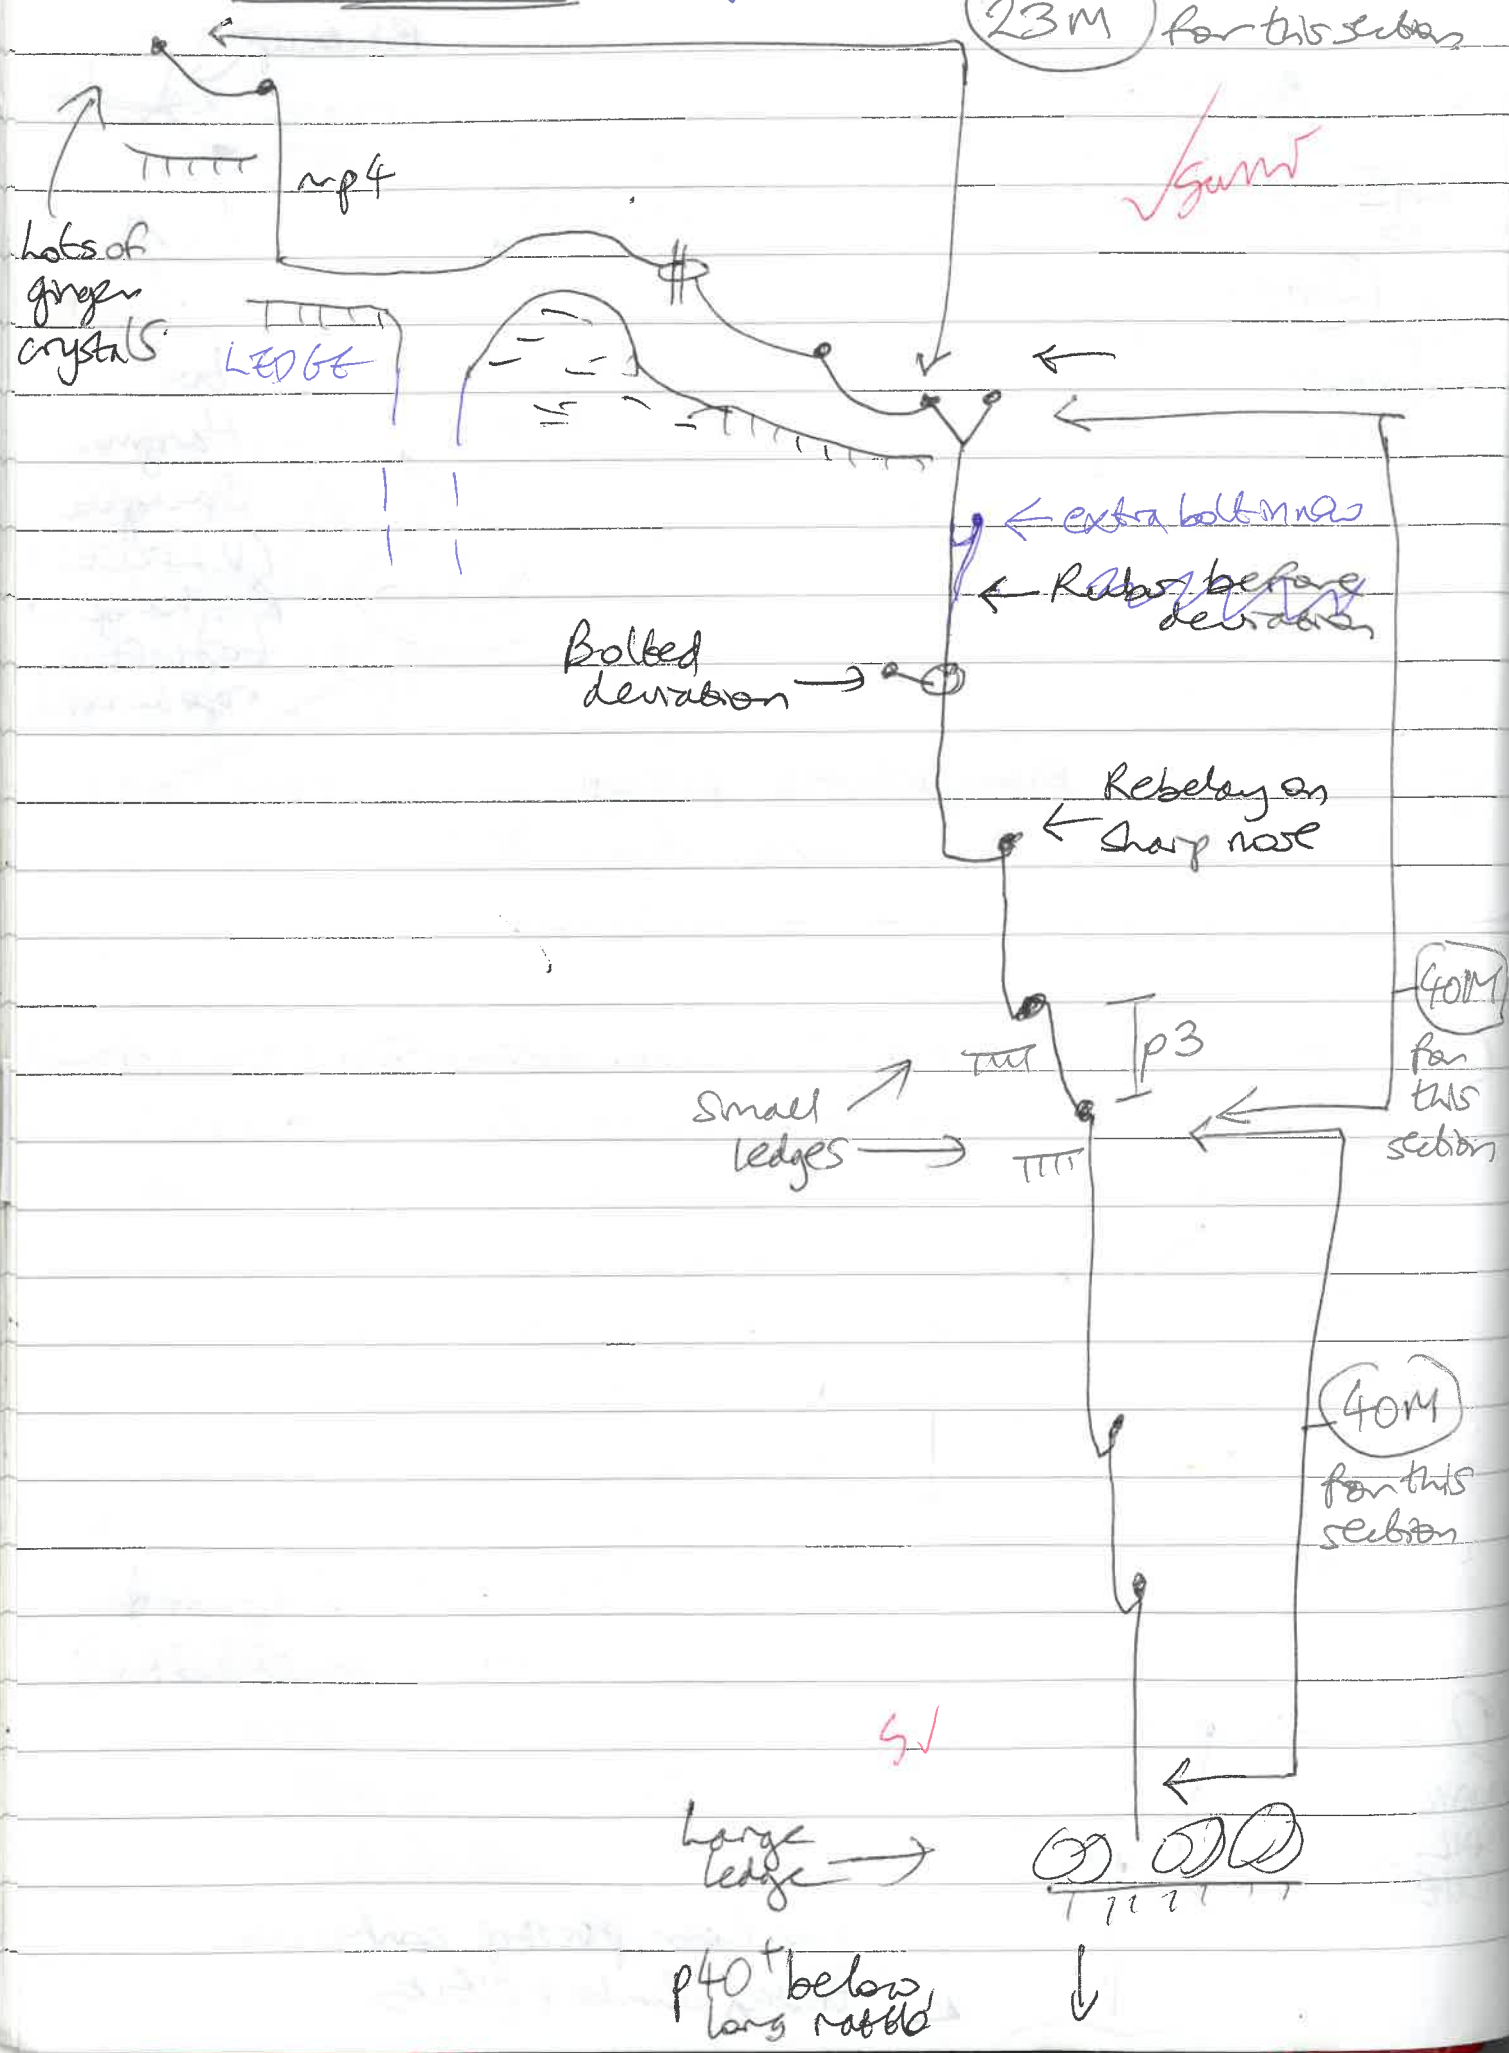 23M for this section
mp4
Lots of
ginger
crystals
LEDGE
extra bolt in now
Rebar before
deviation
Bolted
deviation
Rebelay on
sharp nose
p3
40M
for
this
section
Small
ledges
40M
for this
section
S
Large
ledge
p40+ below,
long rattle